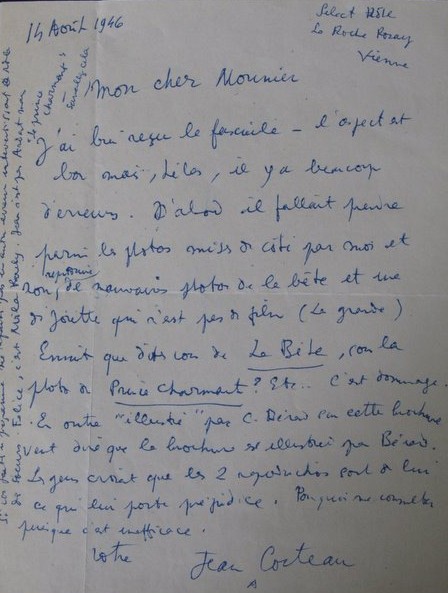 14 Août 1946
Select Hôtel
La Roche Posay
Vienne
mon cher Mounier
J'ai bien reçu le fascicule – l'aspect est
bon mais, hélas, il y a beaucoup
d'erreurs. D'abord il fallait prendre
parmi les photos mises de côté par moi et
non, reproduire de mauvaises photos de la bête et une
de Josette qui n'est pas du film (La grande).
Ensuite que dites vous de La Bête, sous la
photo du Prince Charmant? Etc... C'est dommage.
En outre "illustré" par C. Bérard sur cette brochure
veut dire que la brochure est illustrée par Bérard.
Les gens croient que les 2 reproductions sont de lui
ce qui lui porte préjudice. Pourquoi me consulter
puisque c'est inefficace.
Votre
Jean Cocteau
le prince
charmant